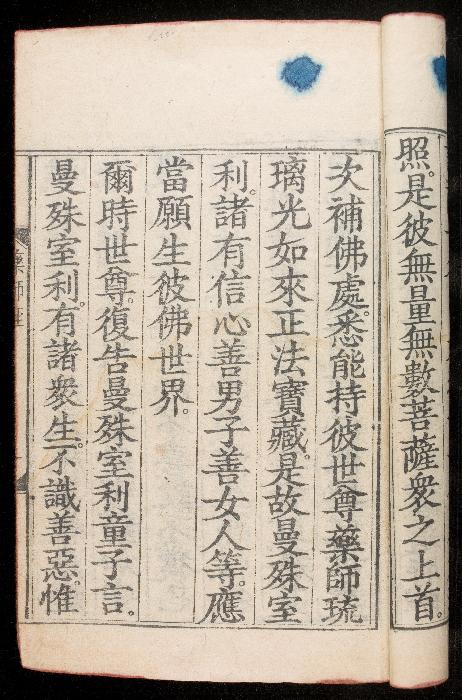 照。是彼無量無數菩薩衆之上首。
次補佛處。悉能持彼世尊藥師琉
璃光如來正法寶藏。是故曼殊室
利。諸有信心善男子善女人等。應
當願生彼佛世界。
爾時世尊。復告曼殊室利童子言。
曼殊室利。有諸衆生。不識善惡。惟
藥師經